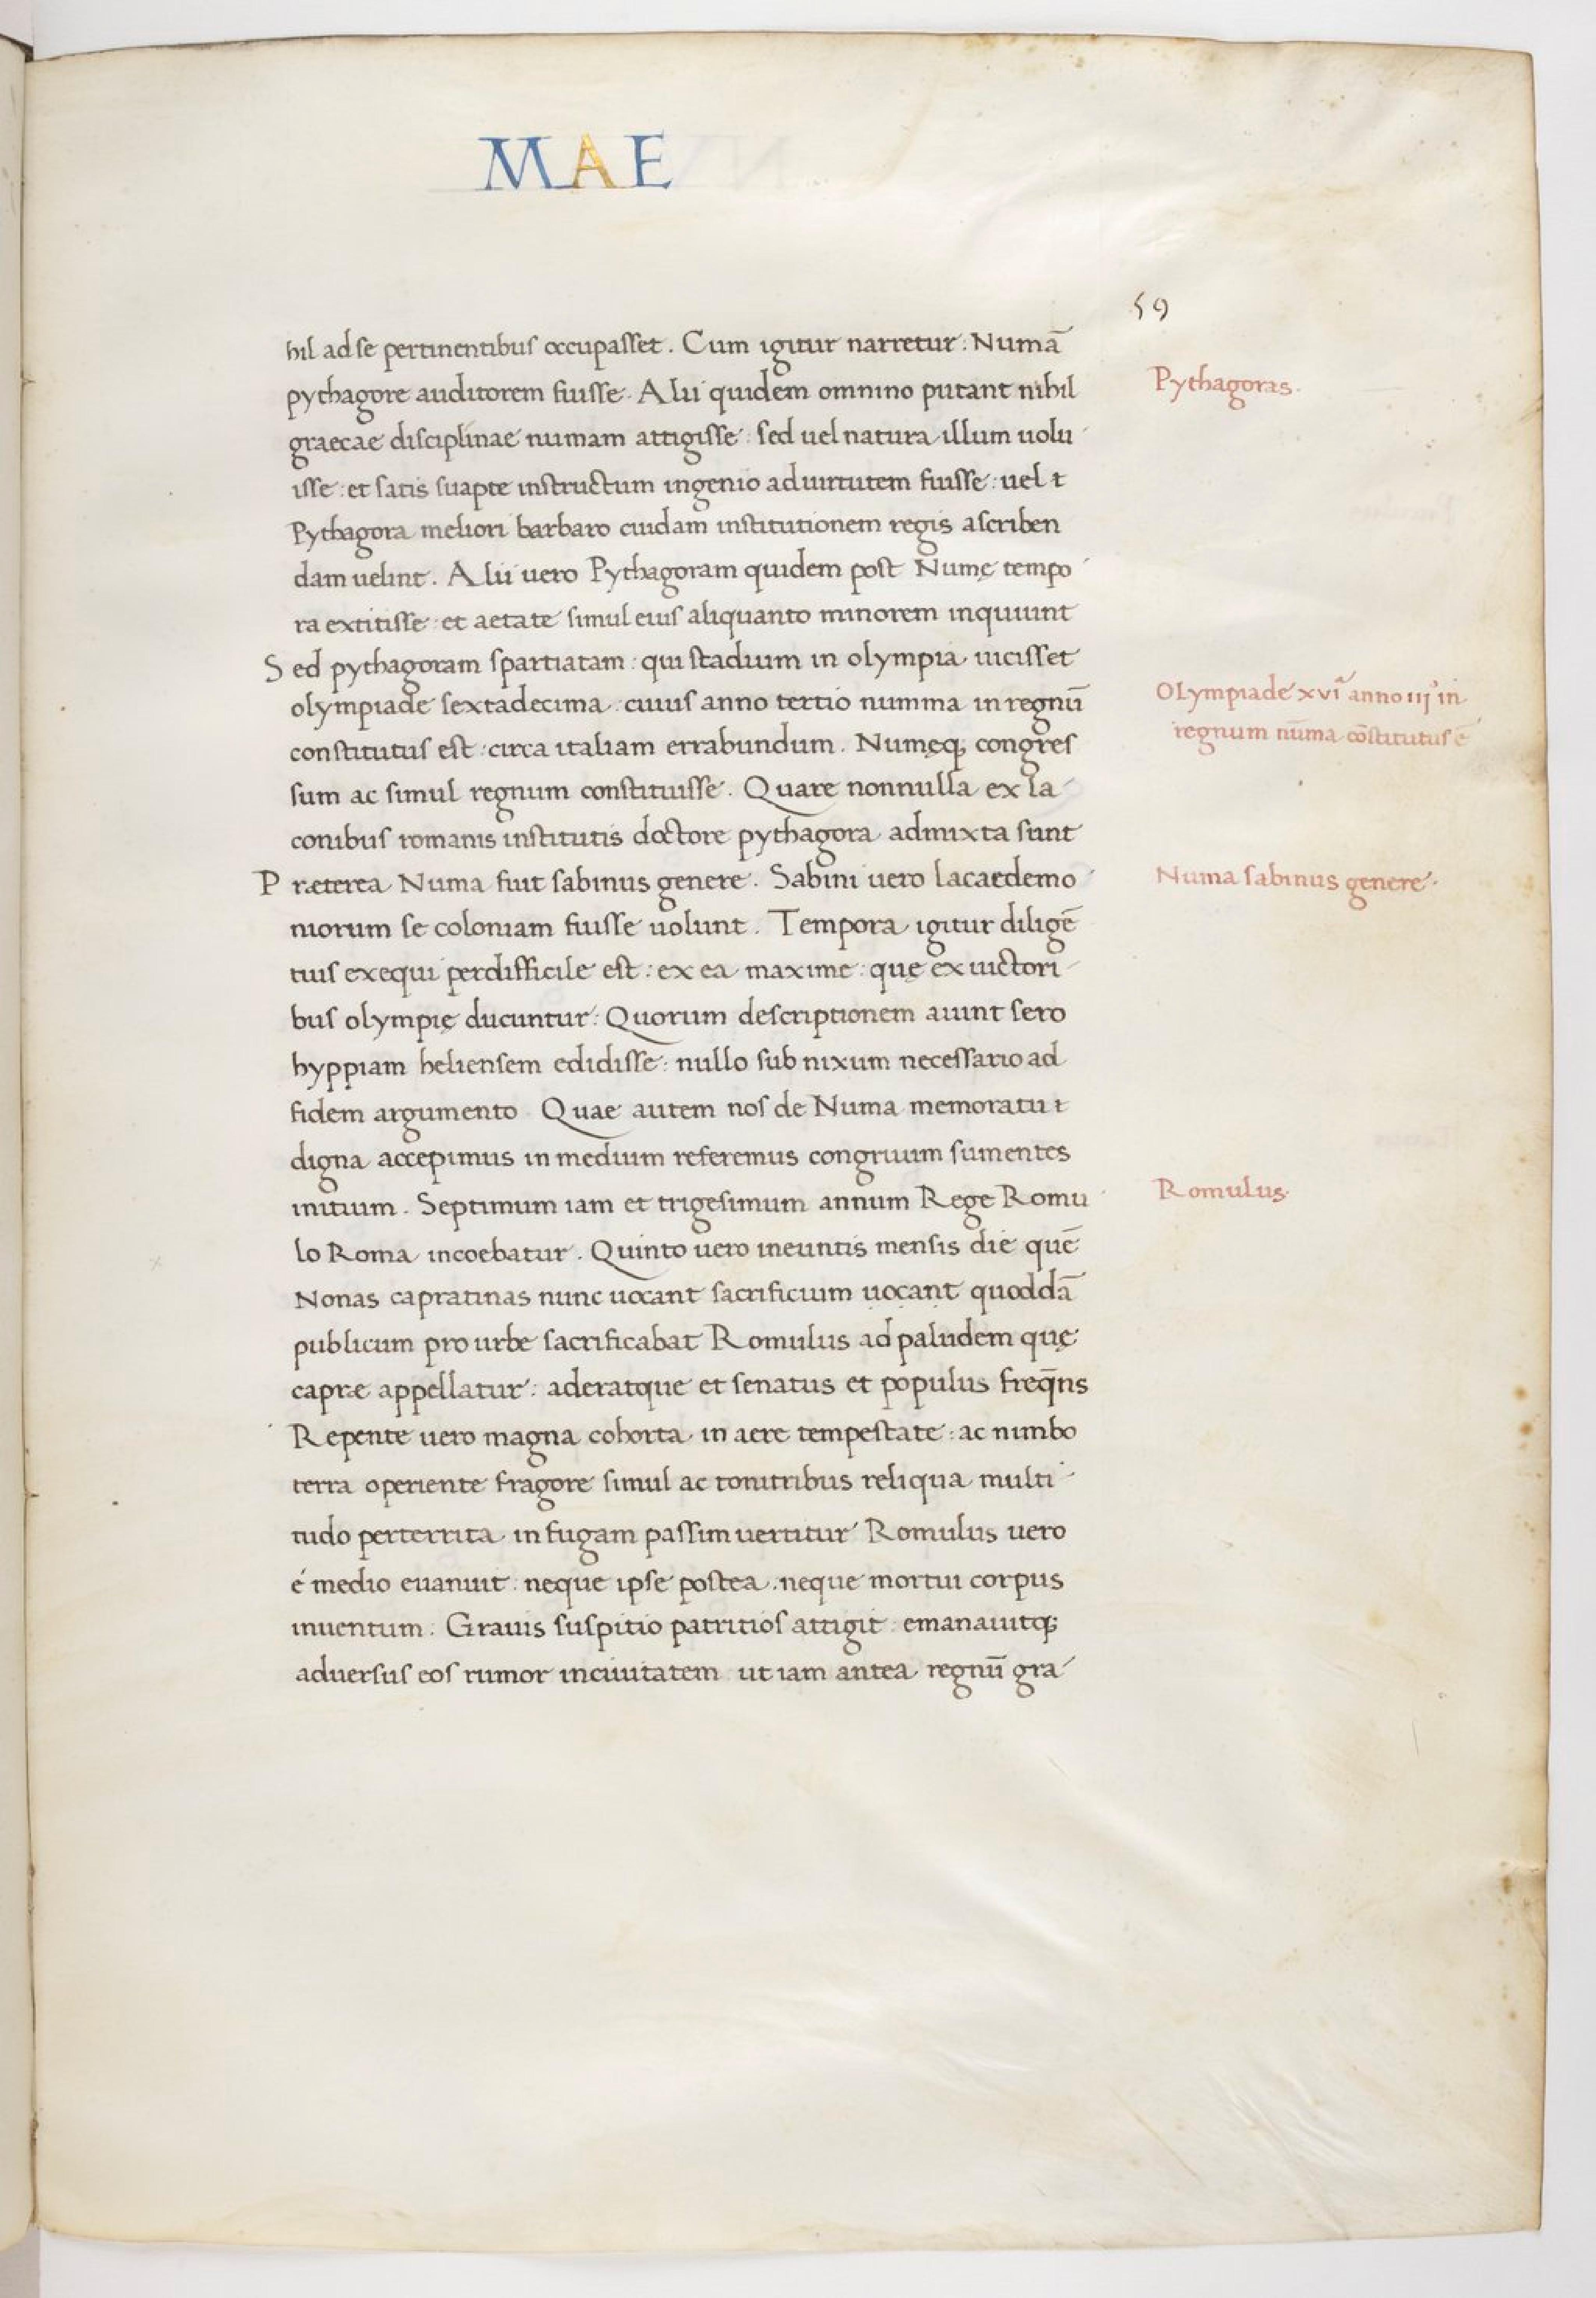 MAE
59
hil ad se pertinentibus occupasset. Cum igitur narretur: Numā
pythagore auditorem fuisse. Alii quidem omnino putant nihil
Pythagoras.
graecae disciplinae numam attigisse: sed uel natura illum uolu
isse: et satis suapte instructum ingenio ad uirtutem fuisse: uel t
Pythagora meliori barbaro cuidam institutionem regis ascriben
dam uelint. Alii uero Pythagoram quidem post Numę tempo
ra extitisse: et aetate simul eius aliquanto minorem inquiunt
Sed pythagoram spartiatam: qui stadium in olympia uicisset
olympiade sextadecima: cuius anno tertio numma in regnū
Olympiade xvi anno iij in
constitutus est: circa italiam errabundum. Numęq; congres
regnum nūma cōstitutus ē
sum ac simul regnum constituisse. Quare nonnulla ex la
conibus romanis institutis doctore pythagora admixta sunt
Præterea Numa fuit sabinus genere. Sabini uero lacaedemo
Numa sabinus genere.
niorum se coloniam fuisse uolunt. Tempora igitur diligē
tius exequi perdifficile est: ex ea maxime: quę ex uictori
bus olympię ducuntur: Quorum descriptionem aiunt sero
hyppiam heliensem edidisse: nullo sub nixum necessario ad
fidem argumento Quae autem nos de Numa memoratu t
digna accepimus in medium referemus congruum sumentes
initium. Septimum iam et trigesimum annum Rege Romu
Romulus.
lo Roma incoebatur. Quinto uero ineuntis mensis die quē
Nonas capratinas nunc uocant sacrificium uocant quoddā
publicum pro urbe sacrificabat Romulus ad paludem quę
capræ appellatur: aderatque et senatus et populus freq̄ns
Repente uero magna cohorta in aere tempestate: ac nimbo
terra operiente fragore simul ac tonitribus reliqua multi
tudo perterrita in fugam passim uertitur Romulus uero
é medio euanuit: neque ipse postea neque mortui corpus
inuentum. Grauis suspitio patritios attigit: emanauitq;
aduersus eos rumor in ciuitatem ut iam antea regnū gra